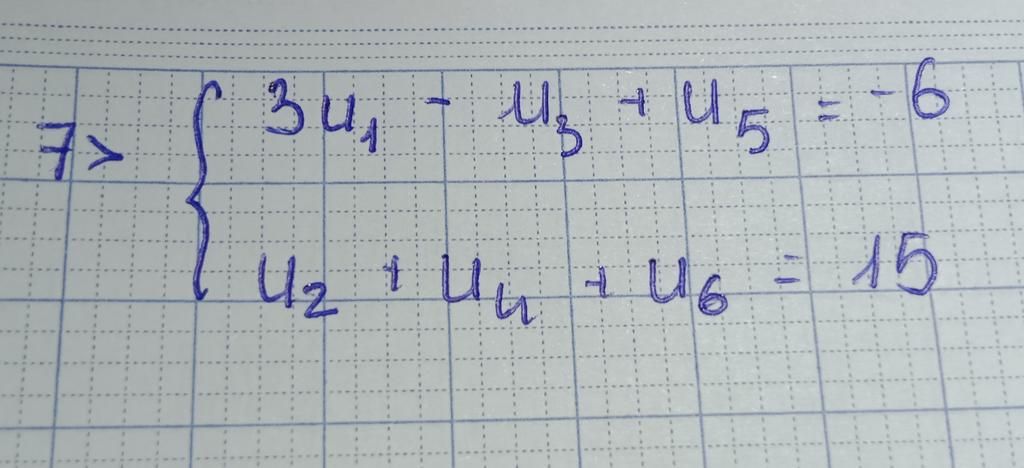 7> { 3u₁ - u₃ + u₅ = -6
u₂ + u₄ + u₆ = 15